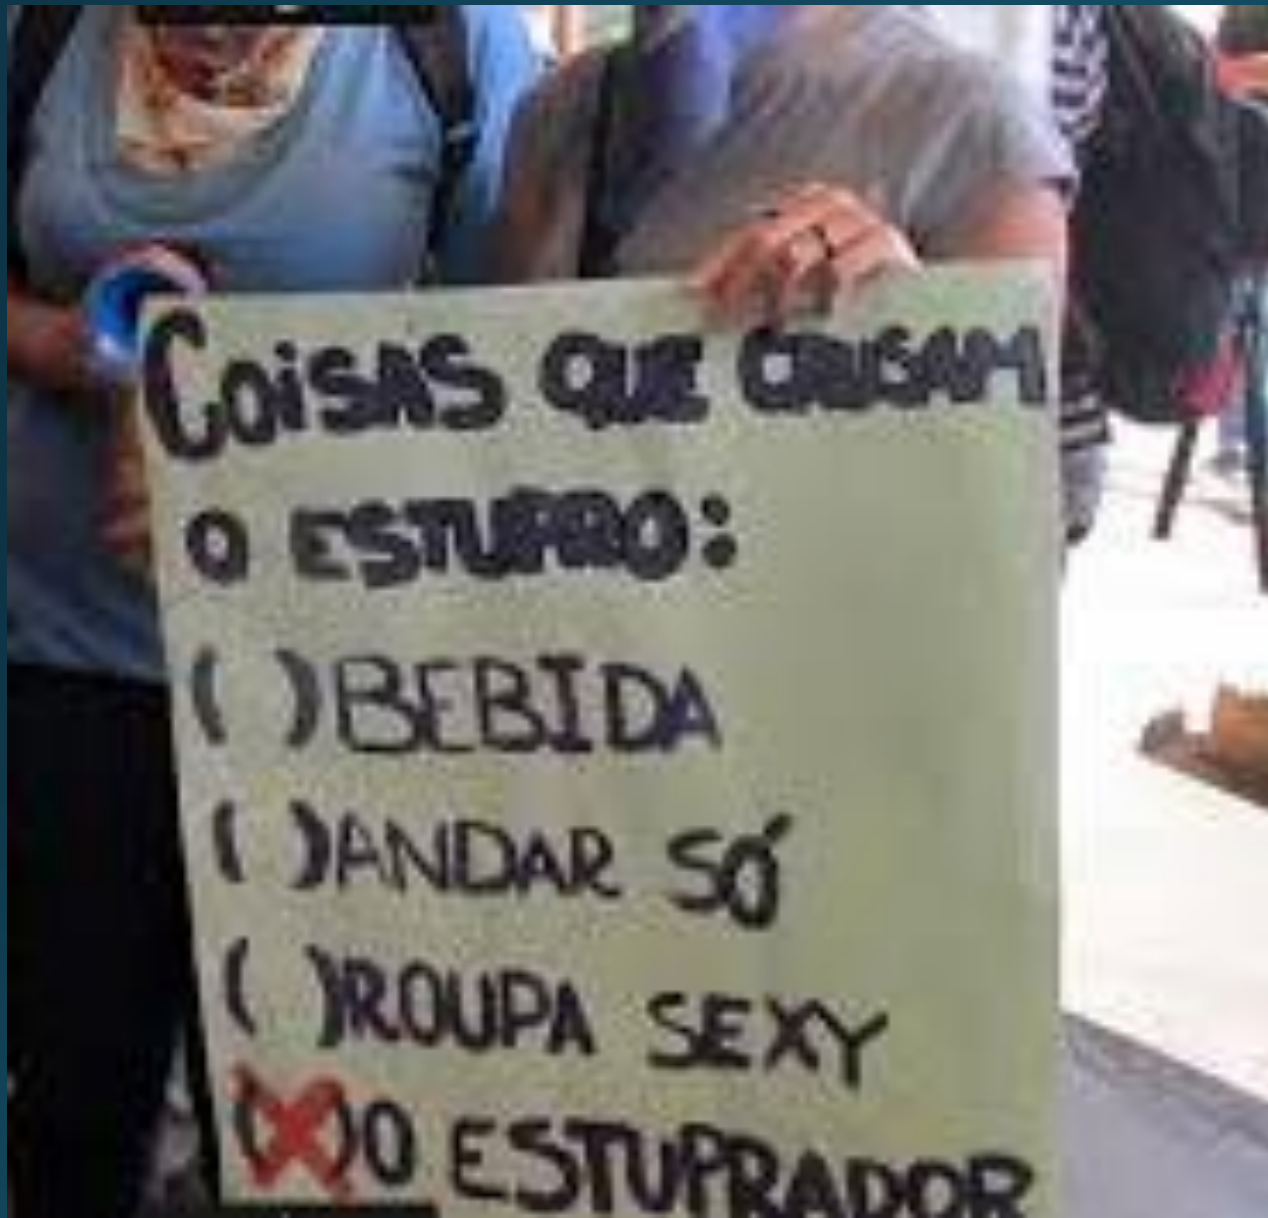 COISAS QUE CAUSAM
O ESTUPRO:
( ) BEBIDA
( ) ANDAR SÓ
( ) ROUPA SEXY
(X) O ESTUPRADOR